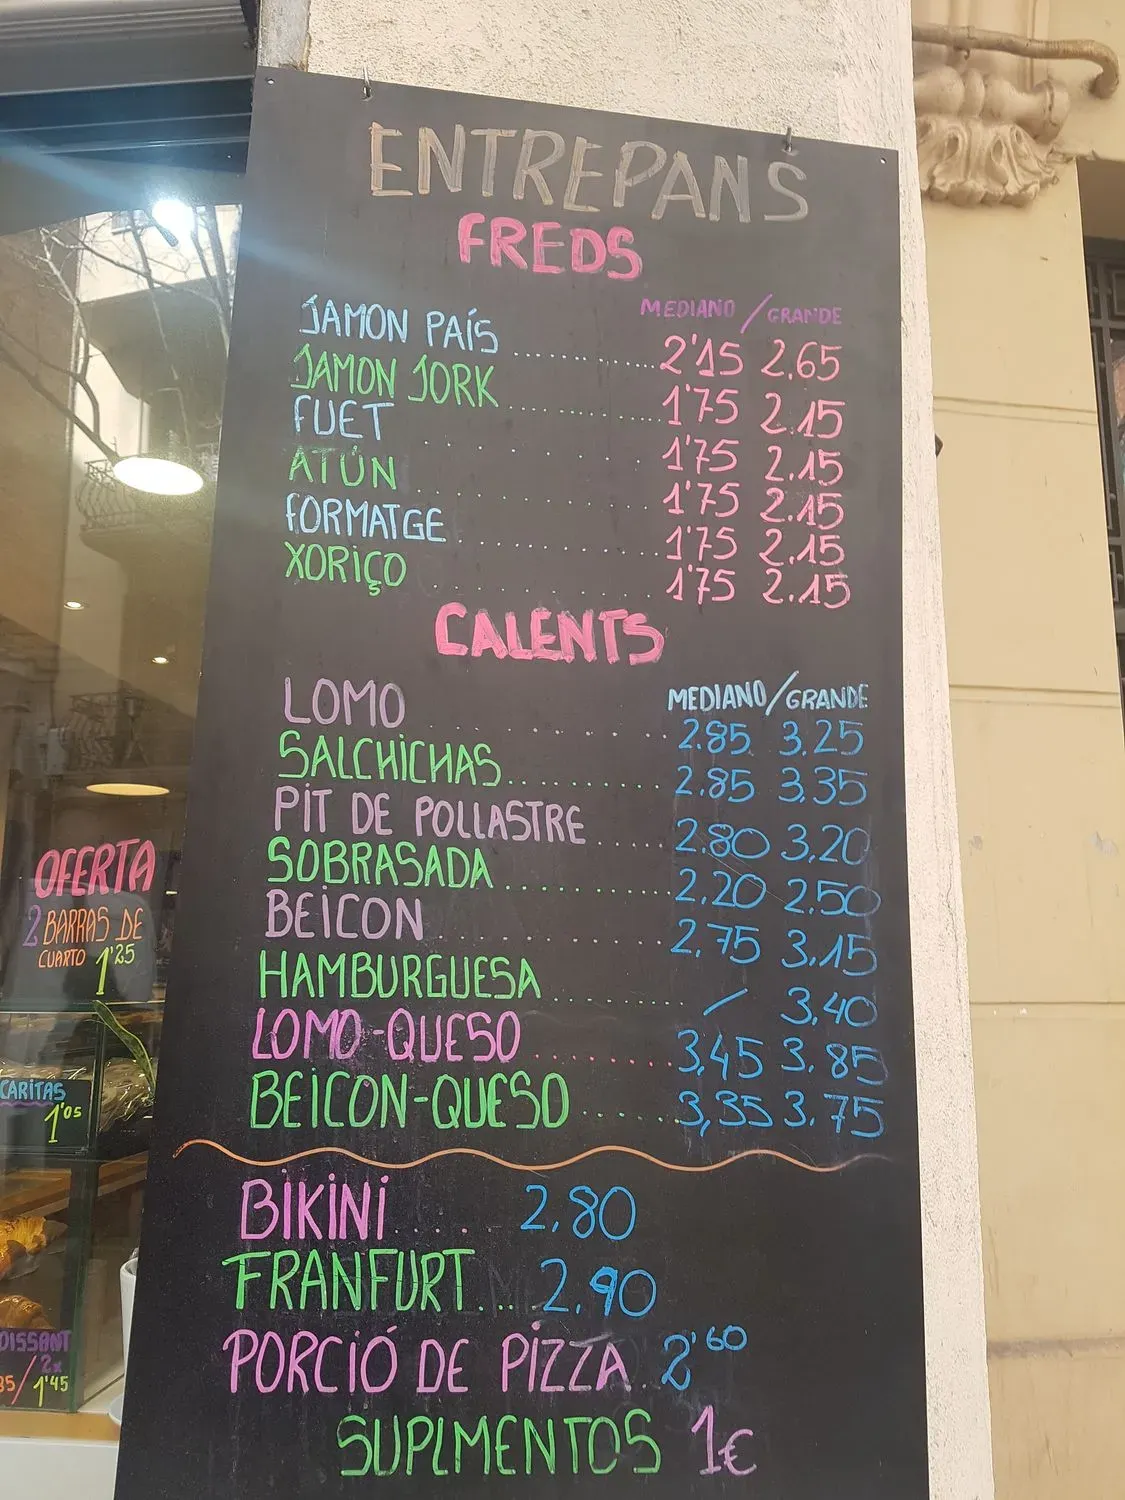 ENTREPANS
FREDS
MEDIANO / GRANDE
JAMON PAÍS ........ 2'15 2.65
JAMON JORK ........ 1'75 2.15
FUET ........ 1'75 2.15
ATÚN ........ 1'75 2.15
FORMATGE ........ 1'75 2.15
XORIÇO ........ 1'75 2.15
CALENTS
MEDIANO/GRANDE
LOMO ........ 2.85 3.25
SALCHICHAS ........ 2.85 3.35
PIT DE POLLASTRE ..... 2.80 3.20
SOBRASADA ........ 2.20 2.50
BEICON ........ 2.75 3.15
HAMBURGUESA ........ / 3.40
LOMO-QUESO ........ 3,45 3.85
BEICON-QUESO ..... 3,35 3.75
BIKINI .... 2.80
FRANFURT... 2.90
PORCIÓ DE PIZZA. 2'60
SUPLMENTOS 1€
OFERTA
2 BARRAS DE
CUARTO 1'25
CARITAS
1'05
OISSANT
2x
35/1'45